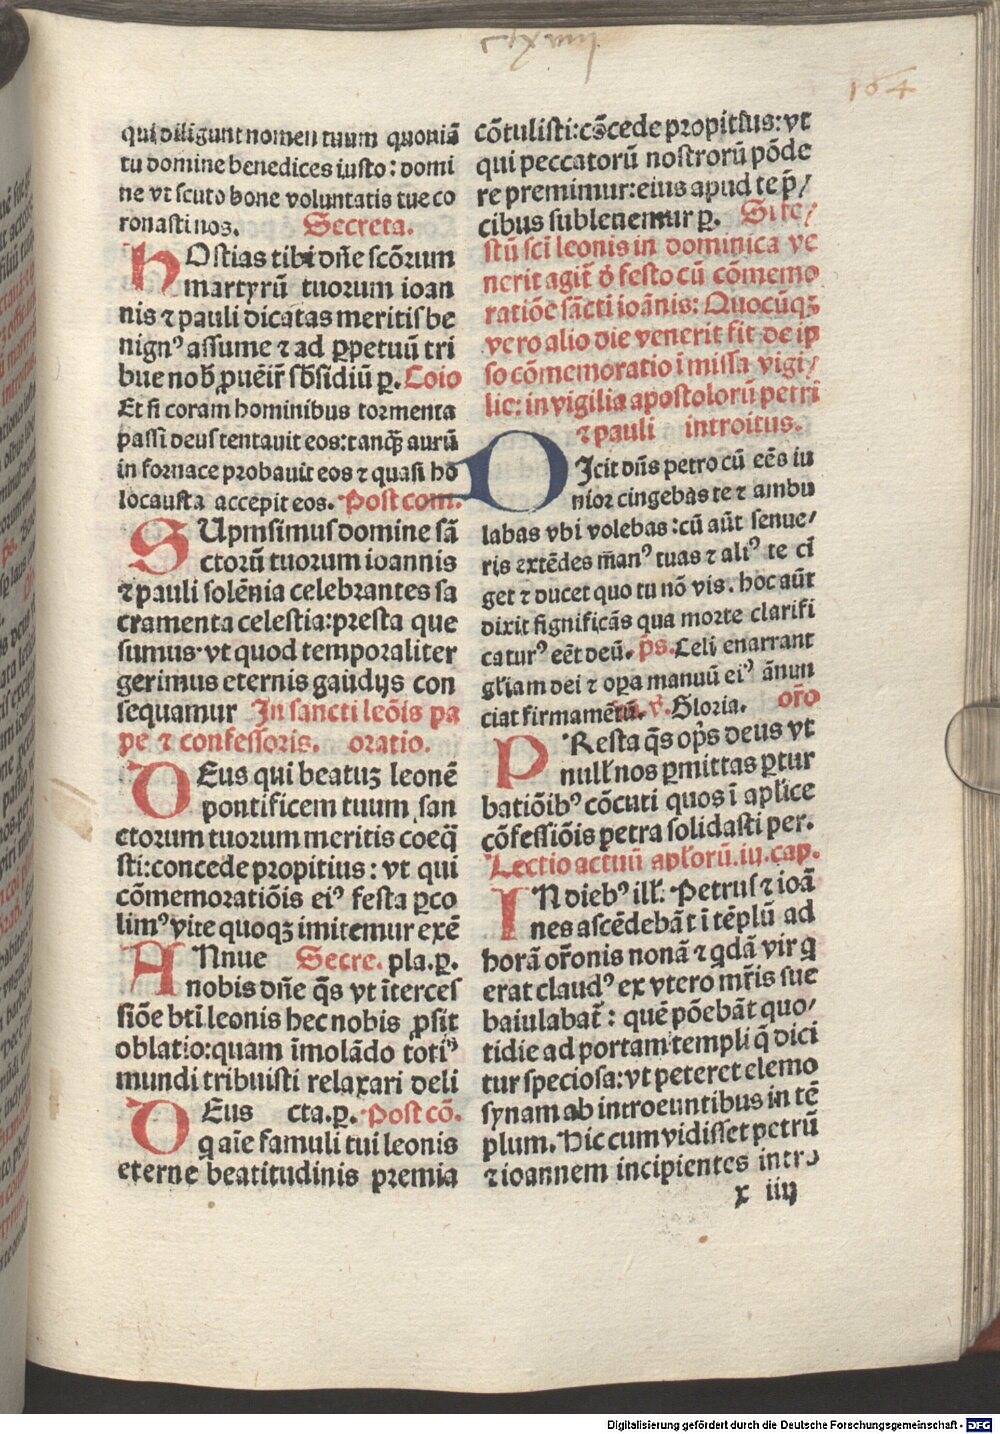 164
qui diligunt nomen tuum quoniã
tu domine benedices iusto: domi
ne vt scuto bone voluntatis tue co
ronasti nos. Secreta.
HOstias tibi dñe scõrum
martyrũ tuorum ioan
nis ⁊ pauli dicatas meritis be
nignꝰ assume ⁊ ad ꝑpetuũ tri
bue nob̃ ꝓuẽir̃ sb̃sidiũ ꝑ. Coio
Et si coram hominibus tormenta
passi deus tentauit eos: tanqꝫ aurũ
in fornace probauit eos ⁊ quasi ho
locausta accepit eos. Post com.
SUpmsimus domine sã
ctorũ tuorum ioannis
⁊ pauli solẽnia celebrantes sa
cramenta celestia: presta que
sumus· vt quod temporaliter
gerimus eternis gaudijs con
sequamur In sancti leõis pa
pe ⁊ confessoris. oratio.
DEus qui beatuꝫ leonẽ
pontificem tuum san
ctorum tuorum meritis coeq̃
sti: concede propitius: vt qui
cõmemoratiõis eiꝰ festa ꝑco
limꝰ vite quoqꝫ imitemur exẽ
ANnue Secre. pla.ꝑ.
nobis dñe q̃s vt ĩterces
siõe bti̇ leonis hec nobis ꝓsit
oblatio: quam ĩmolãdo totiꝰ
mundi tribuisti relaxari deli
DEus cta.ꝑ. Post cõ.
q aĩe famuli tui leonis
eterne beatitudinis premia
cõtulisti: cõcede propitius: vt
qui peccatorũ nostrorũ põde
re premimur: eius apud te p̃/
cibus subleuemur ꝑ. Si fe/
stũ sci̇ leonis in dominica ve
nerit agit̃ ð festo cũ cõmemo
ratiõe sãcti ioãnis: Quocũqꝫ
vero alio die venerit fit de ip
so cõmemoratio ĩ missa vigi/
lie: in vigilia apostolorũ petri
⁊ pauli introitus.
DIcit dñs petro cũ eẽs iu
nior cingebas te ⁊ ambu
labas vbi volebas: cũ aũt senue/
ris extẽdes m̃anꝰ tuas ⁊ aliꝰ te cĩ
get ⁊ ducet quo tu nõ vis. hoc aũt
dixit significãs qua morte clarifi
caturꝰ eẽt deũ. p̃s. Celi enarrant
gl̃iam dei ⁊ oꝑa manuũ eiꝰ ãnun
ciat firmamẽtũ. ℣. Gloria. or̃o
PResta q̃s op̃s deus vt
null̃ nos ꝑmittas ꝑtur
batiõibꝰ cõcuti quos ĩ apl̃ice
cõfessiõis petra solidasti per.
Lectio actuũ apl̃orũ. iij. cap.
IN diebꝰ ill̃. Petrus ⁊ ioã
nes ascẽdebãt ĩ tẽplũ ad
horã or̃onis nonã ⁊ qdã vir q
erat claudꝰ ex vtero mr̃is sue
baiulabat̃: quẽ põebãt quo/
tidie ad portam templi q̃ dici
tur speciosa: vt peteret elemo
synam ab introeuntibus in tẽ
plum. Hic cum vidisset petrũ
⁊ ioannem incipientes intro
x iiij
Digitalisierung gefördert durch die Deutsche Forschungsgemeinschaft - DFG